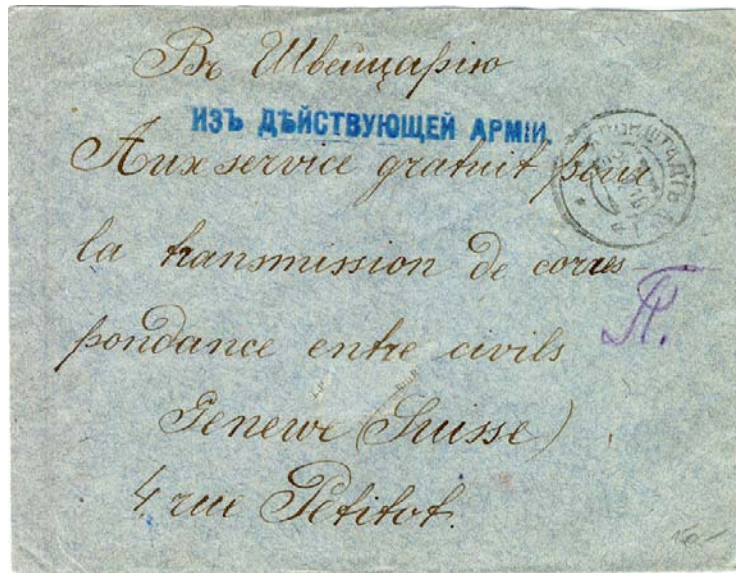 Въ Швейцарію
ИЗЪ ДѢЙСТВУЮЩЕЙ АРМІИ.
Aux service gratuit pour
la transmission de corres-
pondance entre civils
Genewe (Suisse)
4 rue Petitot.